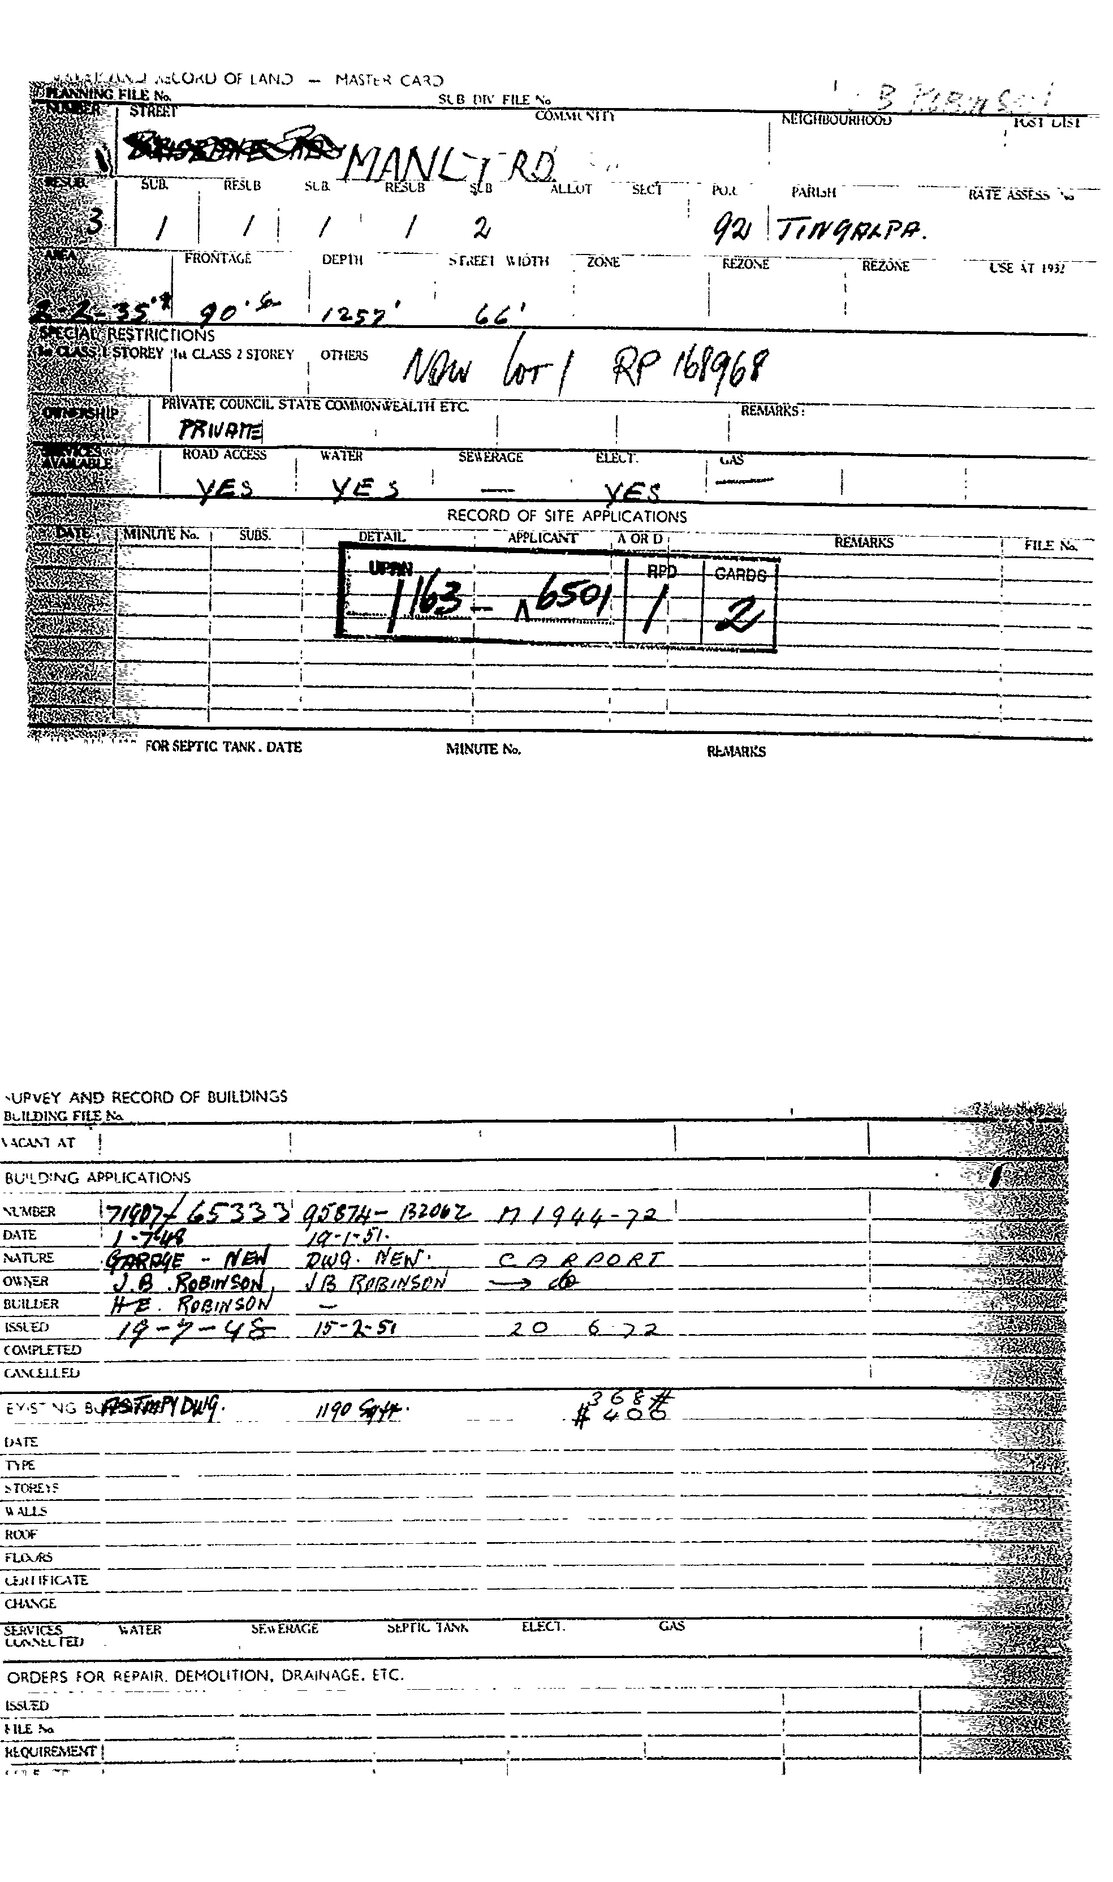 RECORD OF LAND — MASTER CARD
PLANNING FILE No. SUB DIV FILE No B ROBINSON
NUMBER STREET COMMUNITY NEIGHBOURHOOD POST DIST
MANLY RD.
RESUB. SUB. RESUB SUB. RESUB SUB ALLOT SECT POR. PARISH RATE ASSESS No
3 1 1 1 1 2 92 TINGALPA.
AREA FRONTAGE DEPTH STREET WIDTH ZONE REZONE REZONE USE AT 1932
2-2-35.9 90'.6 1257' 66'
SPECIAL RESTRICTIONS
1st CLASS 1 STOREY 1st CLASS 2 STOREY OTHERS NOW LOT 1 RP 168968
OWNERSHIP PRIVATE COUNCIL STATE COMMONWEALTH ETC. REMARKS:
PRIVATE
SERVICES AVAILABLE ROAD ACCESS WATER SEWERAGE ELECT. GAS
YES YES — YES —
RECORD OF SITE APPLICATIONS
DATE MINUTE No. SUBS. DETAIL APPLICANT A OR D REMARKS FILE No.
UPRN RPD CARDS
1163 - 6501 1 2
FOR SEPTIC TANK. DATE MINUTE No. REMARKS
SURVEY AND RECORD OF BUILDINGS
BUILDING FILE No
VACANT AT
BUILDING APPLICATIONS
NUMBER 71907/65333 95874-B2062 M1944-72
DATE 1-7-48 19-1-51.
NATURE GARAGE - NEW DWG. NEW. CARPORT
OWNER J.B. ROBINSON J B ROBINSON → do
BUILDER H E. ROBINSON —
ISSUED 19-7-48 15-2-51 20 6 72
COMPLETED
CANCELLED
EXISTING 1190 Sq ft. 368#
$400
DATE
TYPE
STOREYS
WALLS
ROOF
FLOORS
CERTIFICATE
CHANGE
SERVICES CONNECTED WATER SEWERAGE SEPTIC TANK ELECT. GAS
ORDERS FOR REPAIR, DEMOLITION, DRAINAGE, ETC.
ISSUED
FILE No
REQUIREMENT